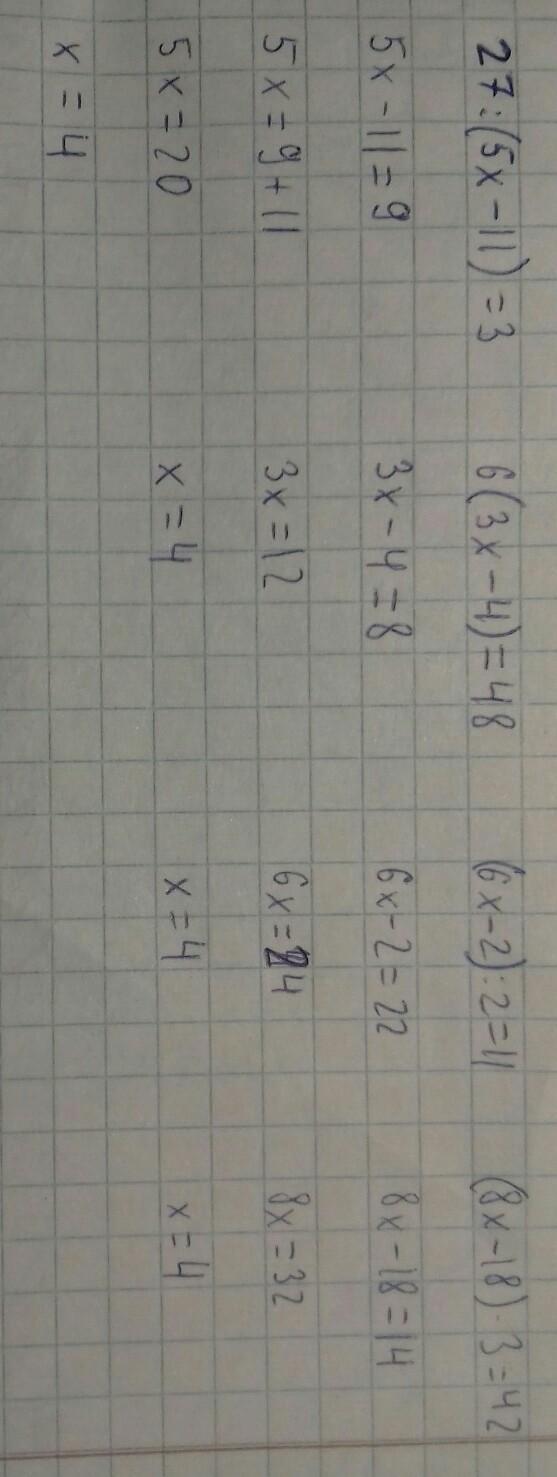 27:(5x-11)=3
5x-11=9
5x=9+11
5x=20
x=4
6(3x-4)=48
3x-4=8
3x=12
x=4
(6x-2):2=11
6x-2=22
6x=24
x=4
(8x-18)·3=42
8x-18=14
8x=32
x=4